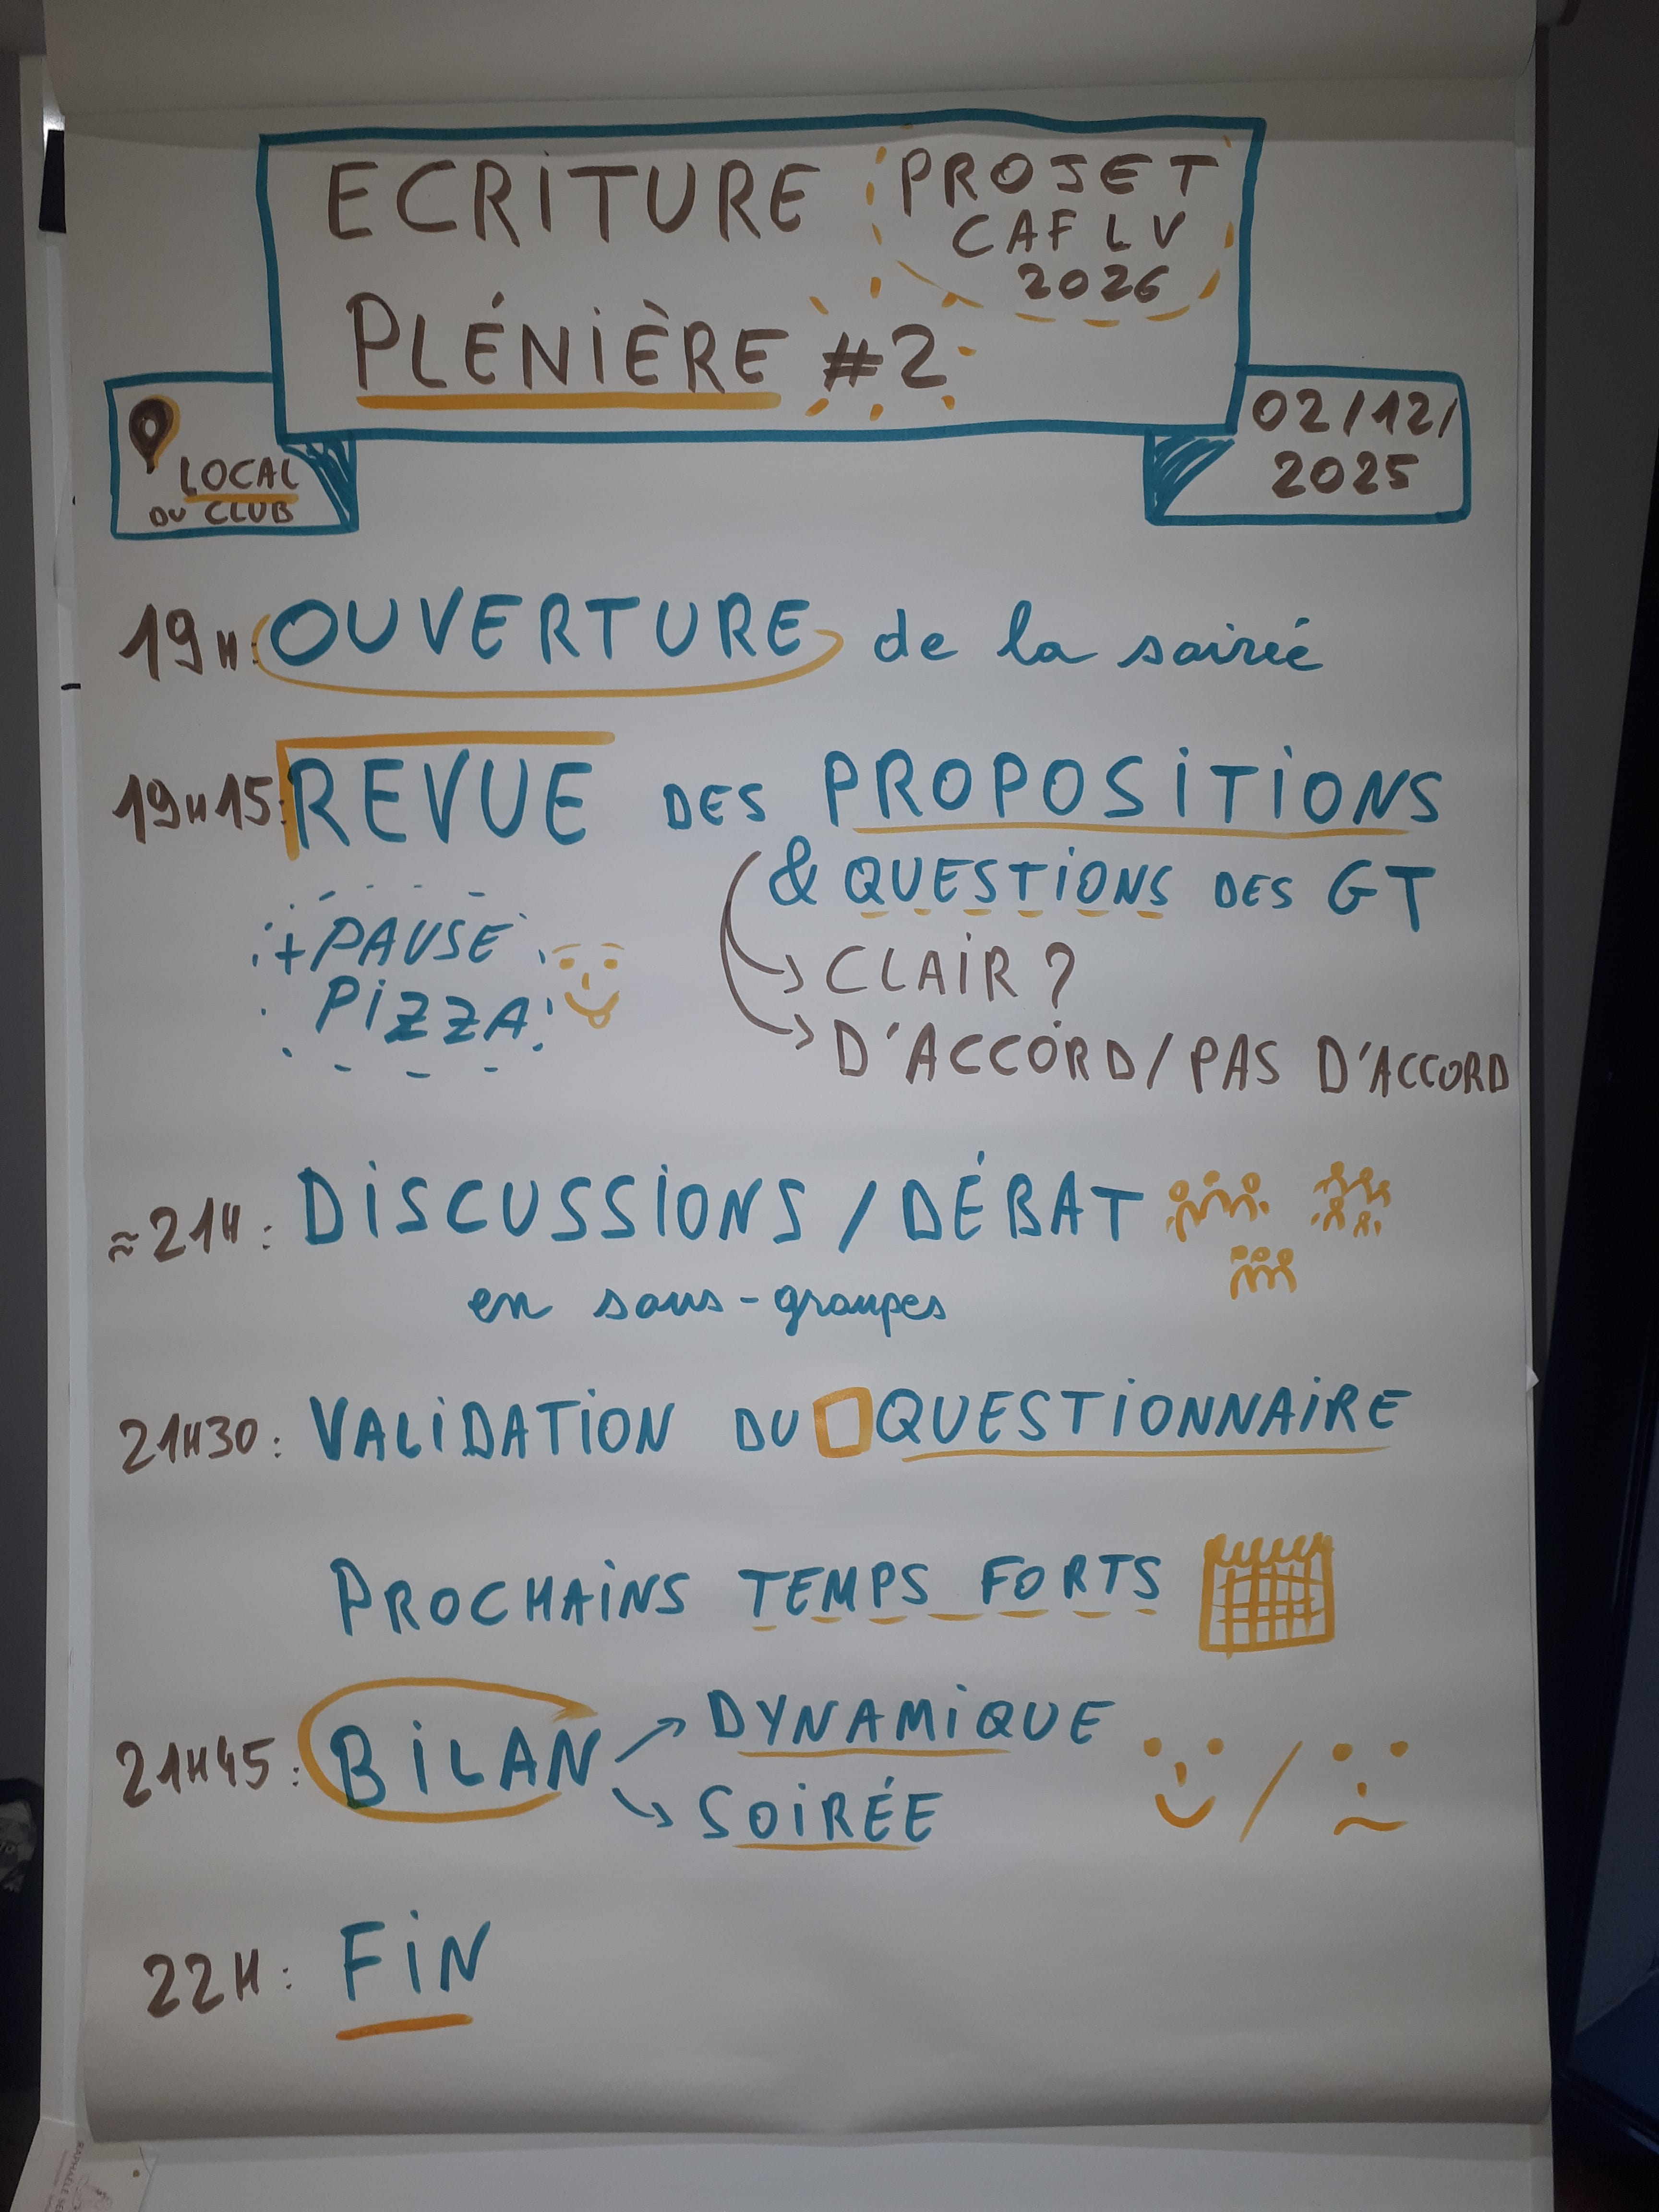 ECRITURE
PROJET
CAF LV
2026
PLÉNIÈRE #2
LOCAL
DU CLUB
02/12/
2025
19H: OUVERTURE de la soirée
19H15: REVUE DES PROPOSITIONS
& QUESTIONS DES GT
+ PAUSE
PIZZA
CLAIR ?
D'ACCORD/PAS D'ACCORD
≈21H: DISCUSSIONS / DÉBAT
en sous-groupes
21H30: VALIDATION DU QUESTIONNAIRE
PROCHAINS TEMPS FORTS
21H45: BILAN
DYNAMIQUE
SOIRÉE
22H: FIN
RAPHAËLLE